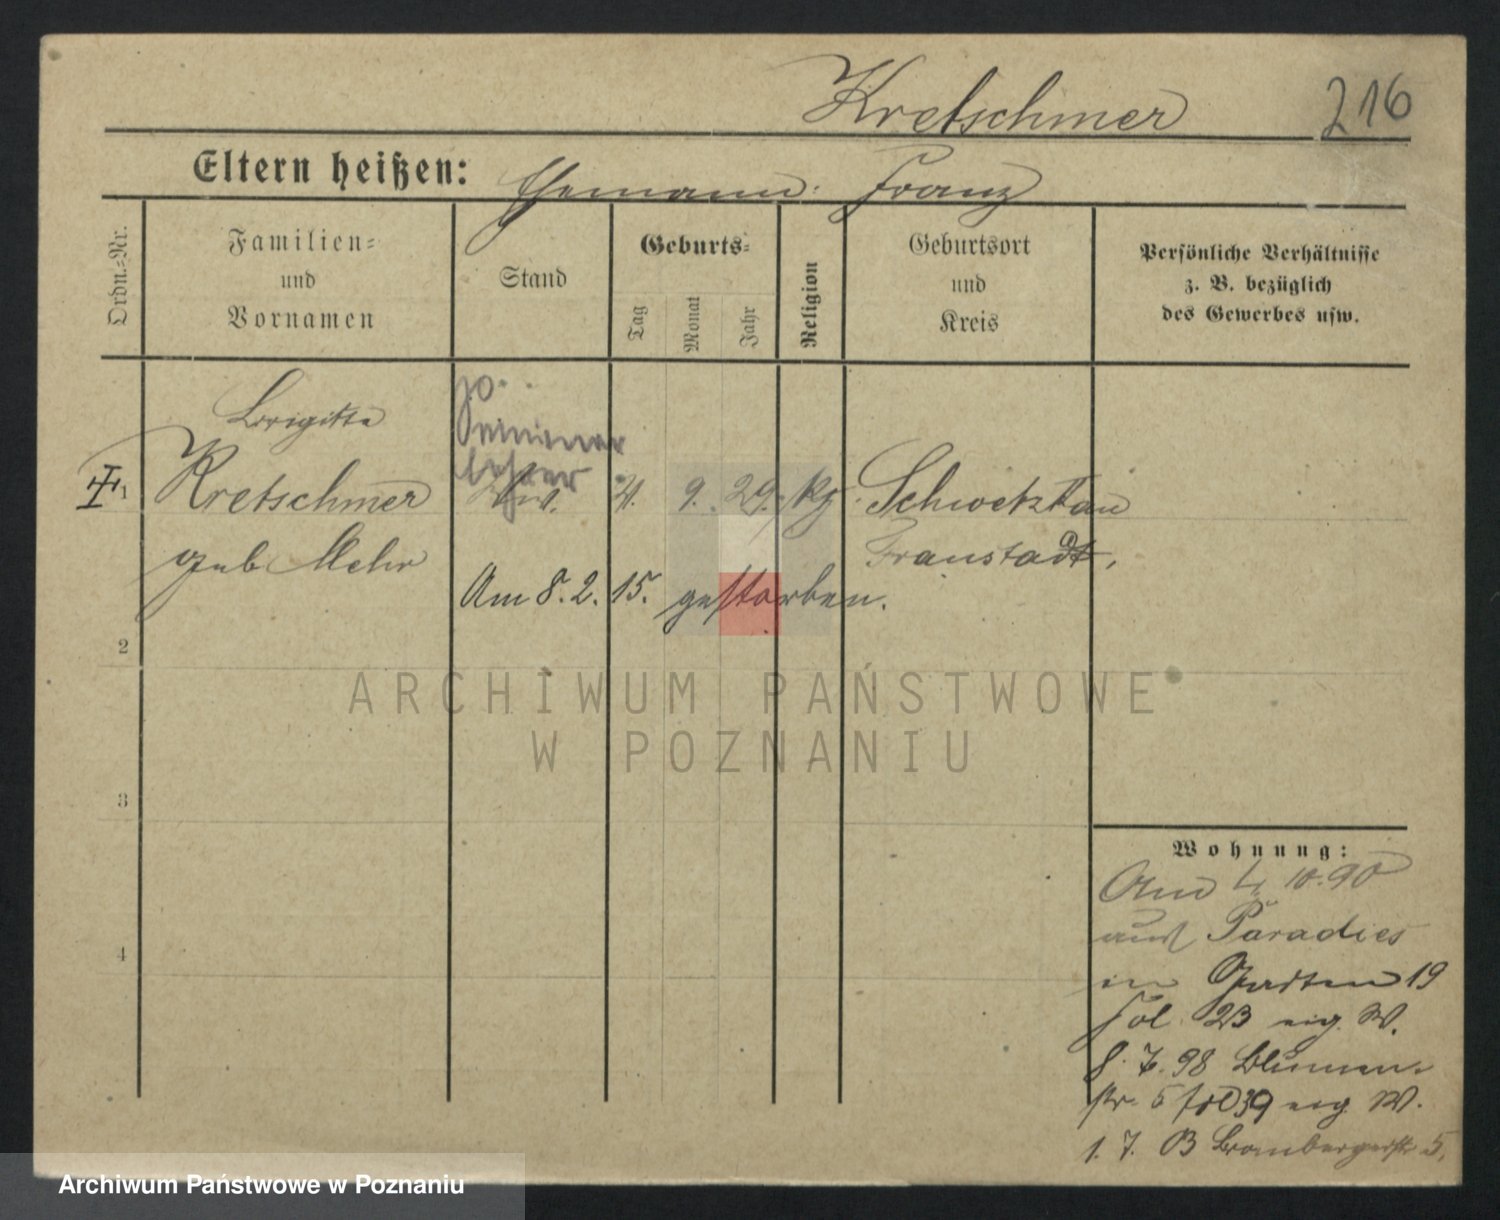 Kretschmer 216
Eltern heißen: Ehemann: Franz
Ordn.=Nr.
Familien=
und
Vornamen
Stand
Geburts=
Tag
Monat
Jahr
Religion
Geburtsort
und
Kreis
Persönliche Verhältnisse
z. B. bezüglich
des Gewerbes usw.
Brigitta
Seminar
lehrer
1 Kretschmer Ww. 21. 9. 29. kg. Schwetzkau
geb Mehr Fraustadt,
Am 8. 2. 15. gestorben.
2
3
4
ARCHIWUM PAŃSTWOWE
W POZNANIU
Wohnung:
Am 4. 10. 90
aus Paradies
in 19
fol. 23 eig. W.
8. 7. 98 Blumen-
str. 5 fol 39 eig W.
1. 7. Brombergerstr 5.
Archiwum Państwowe w Poznaniu